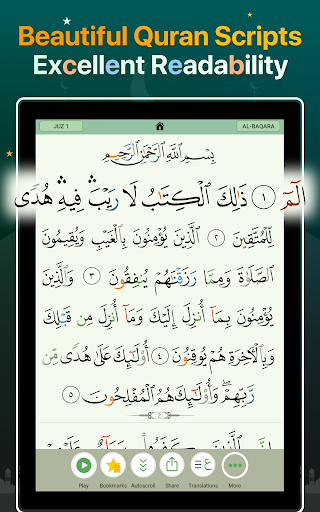 Beautiful Quran Scripts
Excellent Readability
JUZ 1
AL-BAQARA
بِسْمِ ٱللَّهِ ٱلرَّحْمَٰنِ ٱلرَّحِيمِ
الٓمٓ ١ ذَٰلِكَ ٱلْكِتَٰبُ لَا رَيْبَ ۛ فِيهِ ۛ هُدًى
لِّلْمُتَّقِينَ ٢ ٱلَّذِينَ يُؤْمِنُونَ بِٱلْغَيْبِ وَيُقِيمُونَ
ٱلصَّلَوٰةَ وَمِمَّا رَزَقْنَٰهُمْ يُنفِقُونَ ٣ وَٱلَّذِينَ
يُؤْمِنُونَ بِمَآ أُنزِلَ إِلَيْكَ وَمَآ أُنزِلَ مِن قَبْلِكَ
وَبِٱلْأَخِرَةِ هُمْ يُوقِنُونَ ٤ أُو۟لَٰٓئِكَ عَلَىٰ هُدًى مِّن
رَّبِّهِمْ ۖ وَأُو۟لَٰٓئِكَ هُمُ ٱلْمُفْلِحُونَ ٥
2
إِنَّ ٱلَّذِينَ كَفَرُوا۟ سَوَآءٌ عَلَيْهِمْ
Play
Bookmarks
Autoscroll
Share
Translations
More